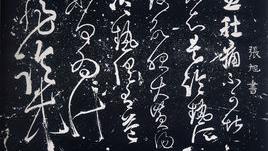 張旭書
肚痛不可堪
不知是冷熱所
致欲服大黃湯
冷熱俱有益
如何為計